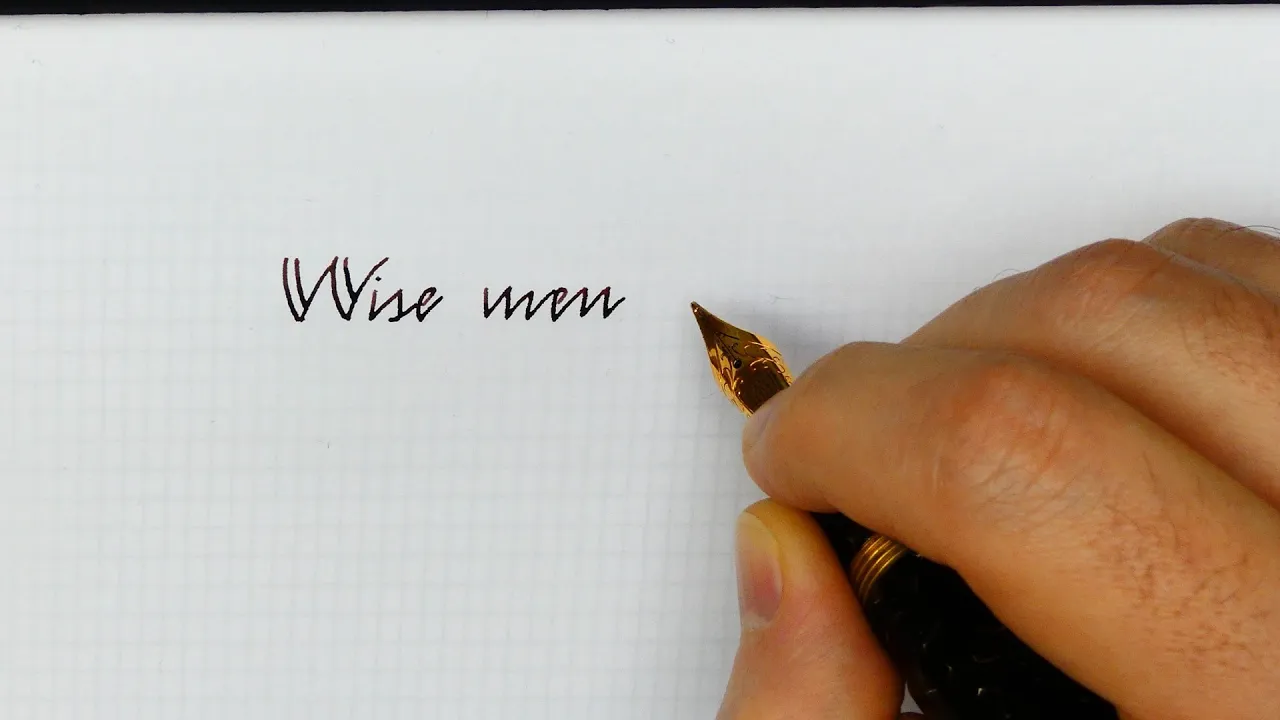 Wise men